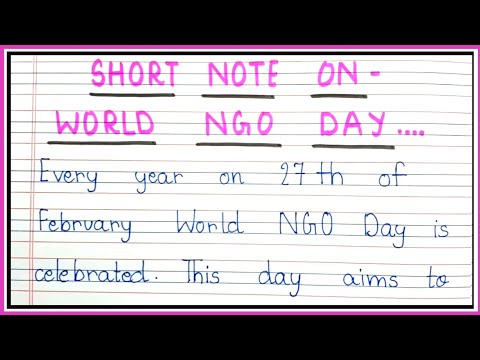 SHORT NOTE ON -
WORLD NGO DAY....
Every year on 27th of
February World NGO Day is
celebrated. This day aims to